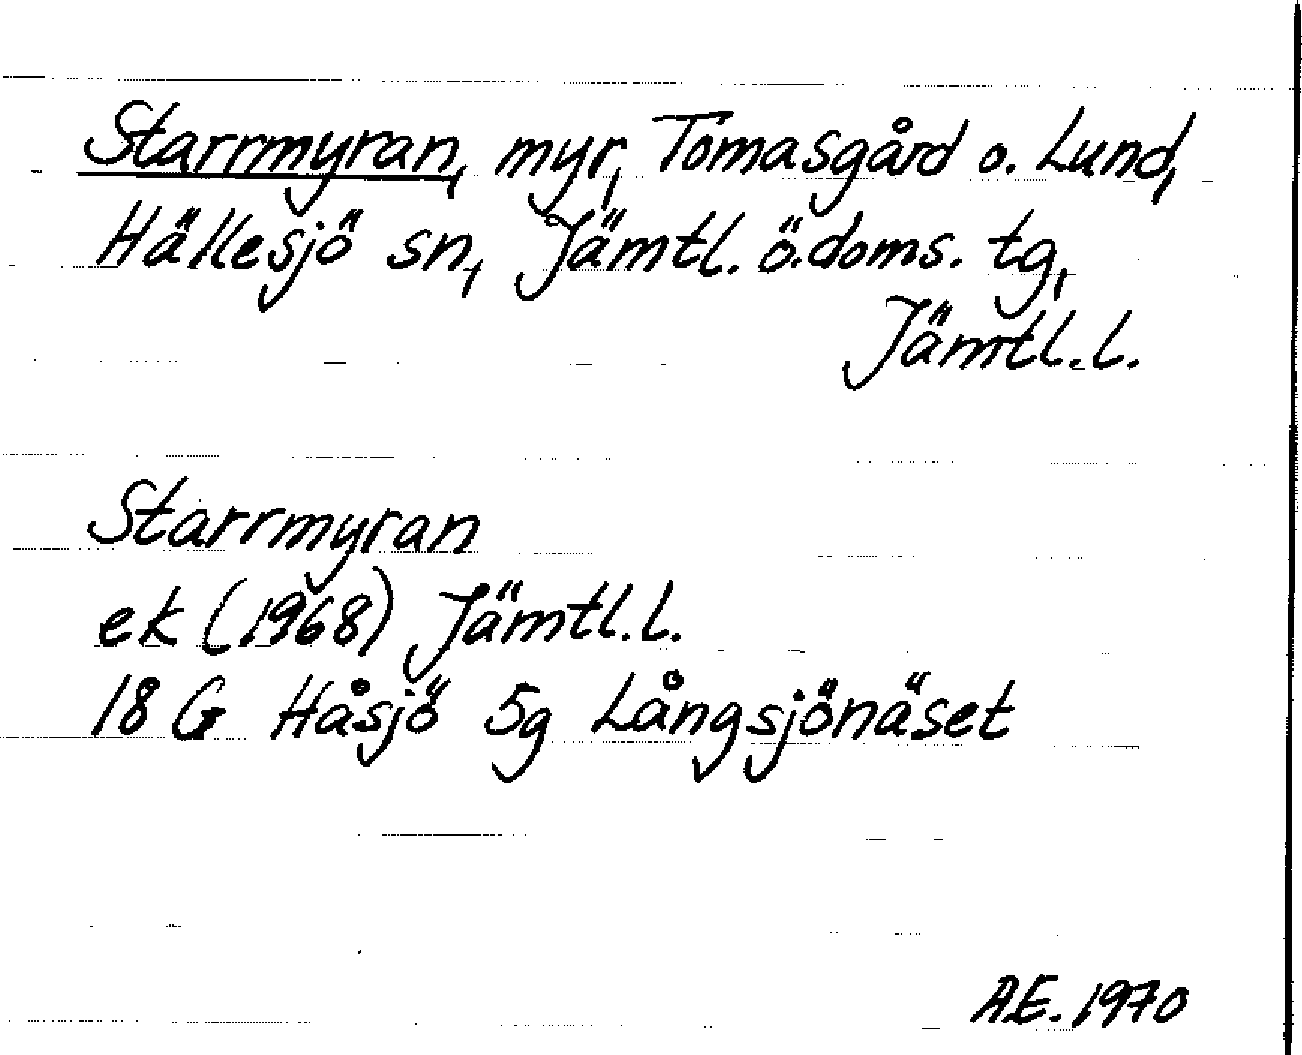 Starrmyran, myr, Tomasgård o. Lund,
Hällesjö sn, Jämtl. ö. doms. tg,
Jämtl. l.
Starrmyran
ek (1968) Jämtl. l.
18 G Håsjö 5g Långsjönäset
A.E. 1970